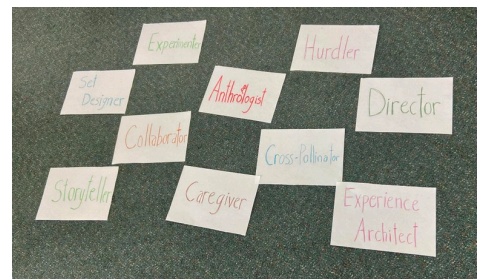 Experimenter
Hurdler
Set
Designer
Anthrologist
Director
Collaborator
Cross-Pollinator
Storyteller
Caregiver
Experience
Architect